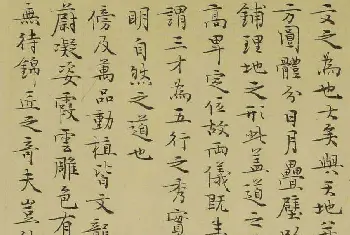 文之為地大矣與天地並
方圓體分日月疊璧
鋪理地之形此蓋道之
高卑定位故兩儀既生
謂三才為五行之秀實
明自然之道也
傍及萬品動植皆文龍
蔚凝姿霞雲雕色有
無待錦匠之奇夫豈